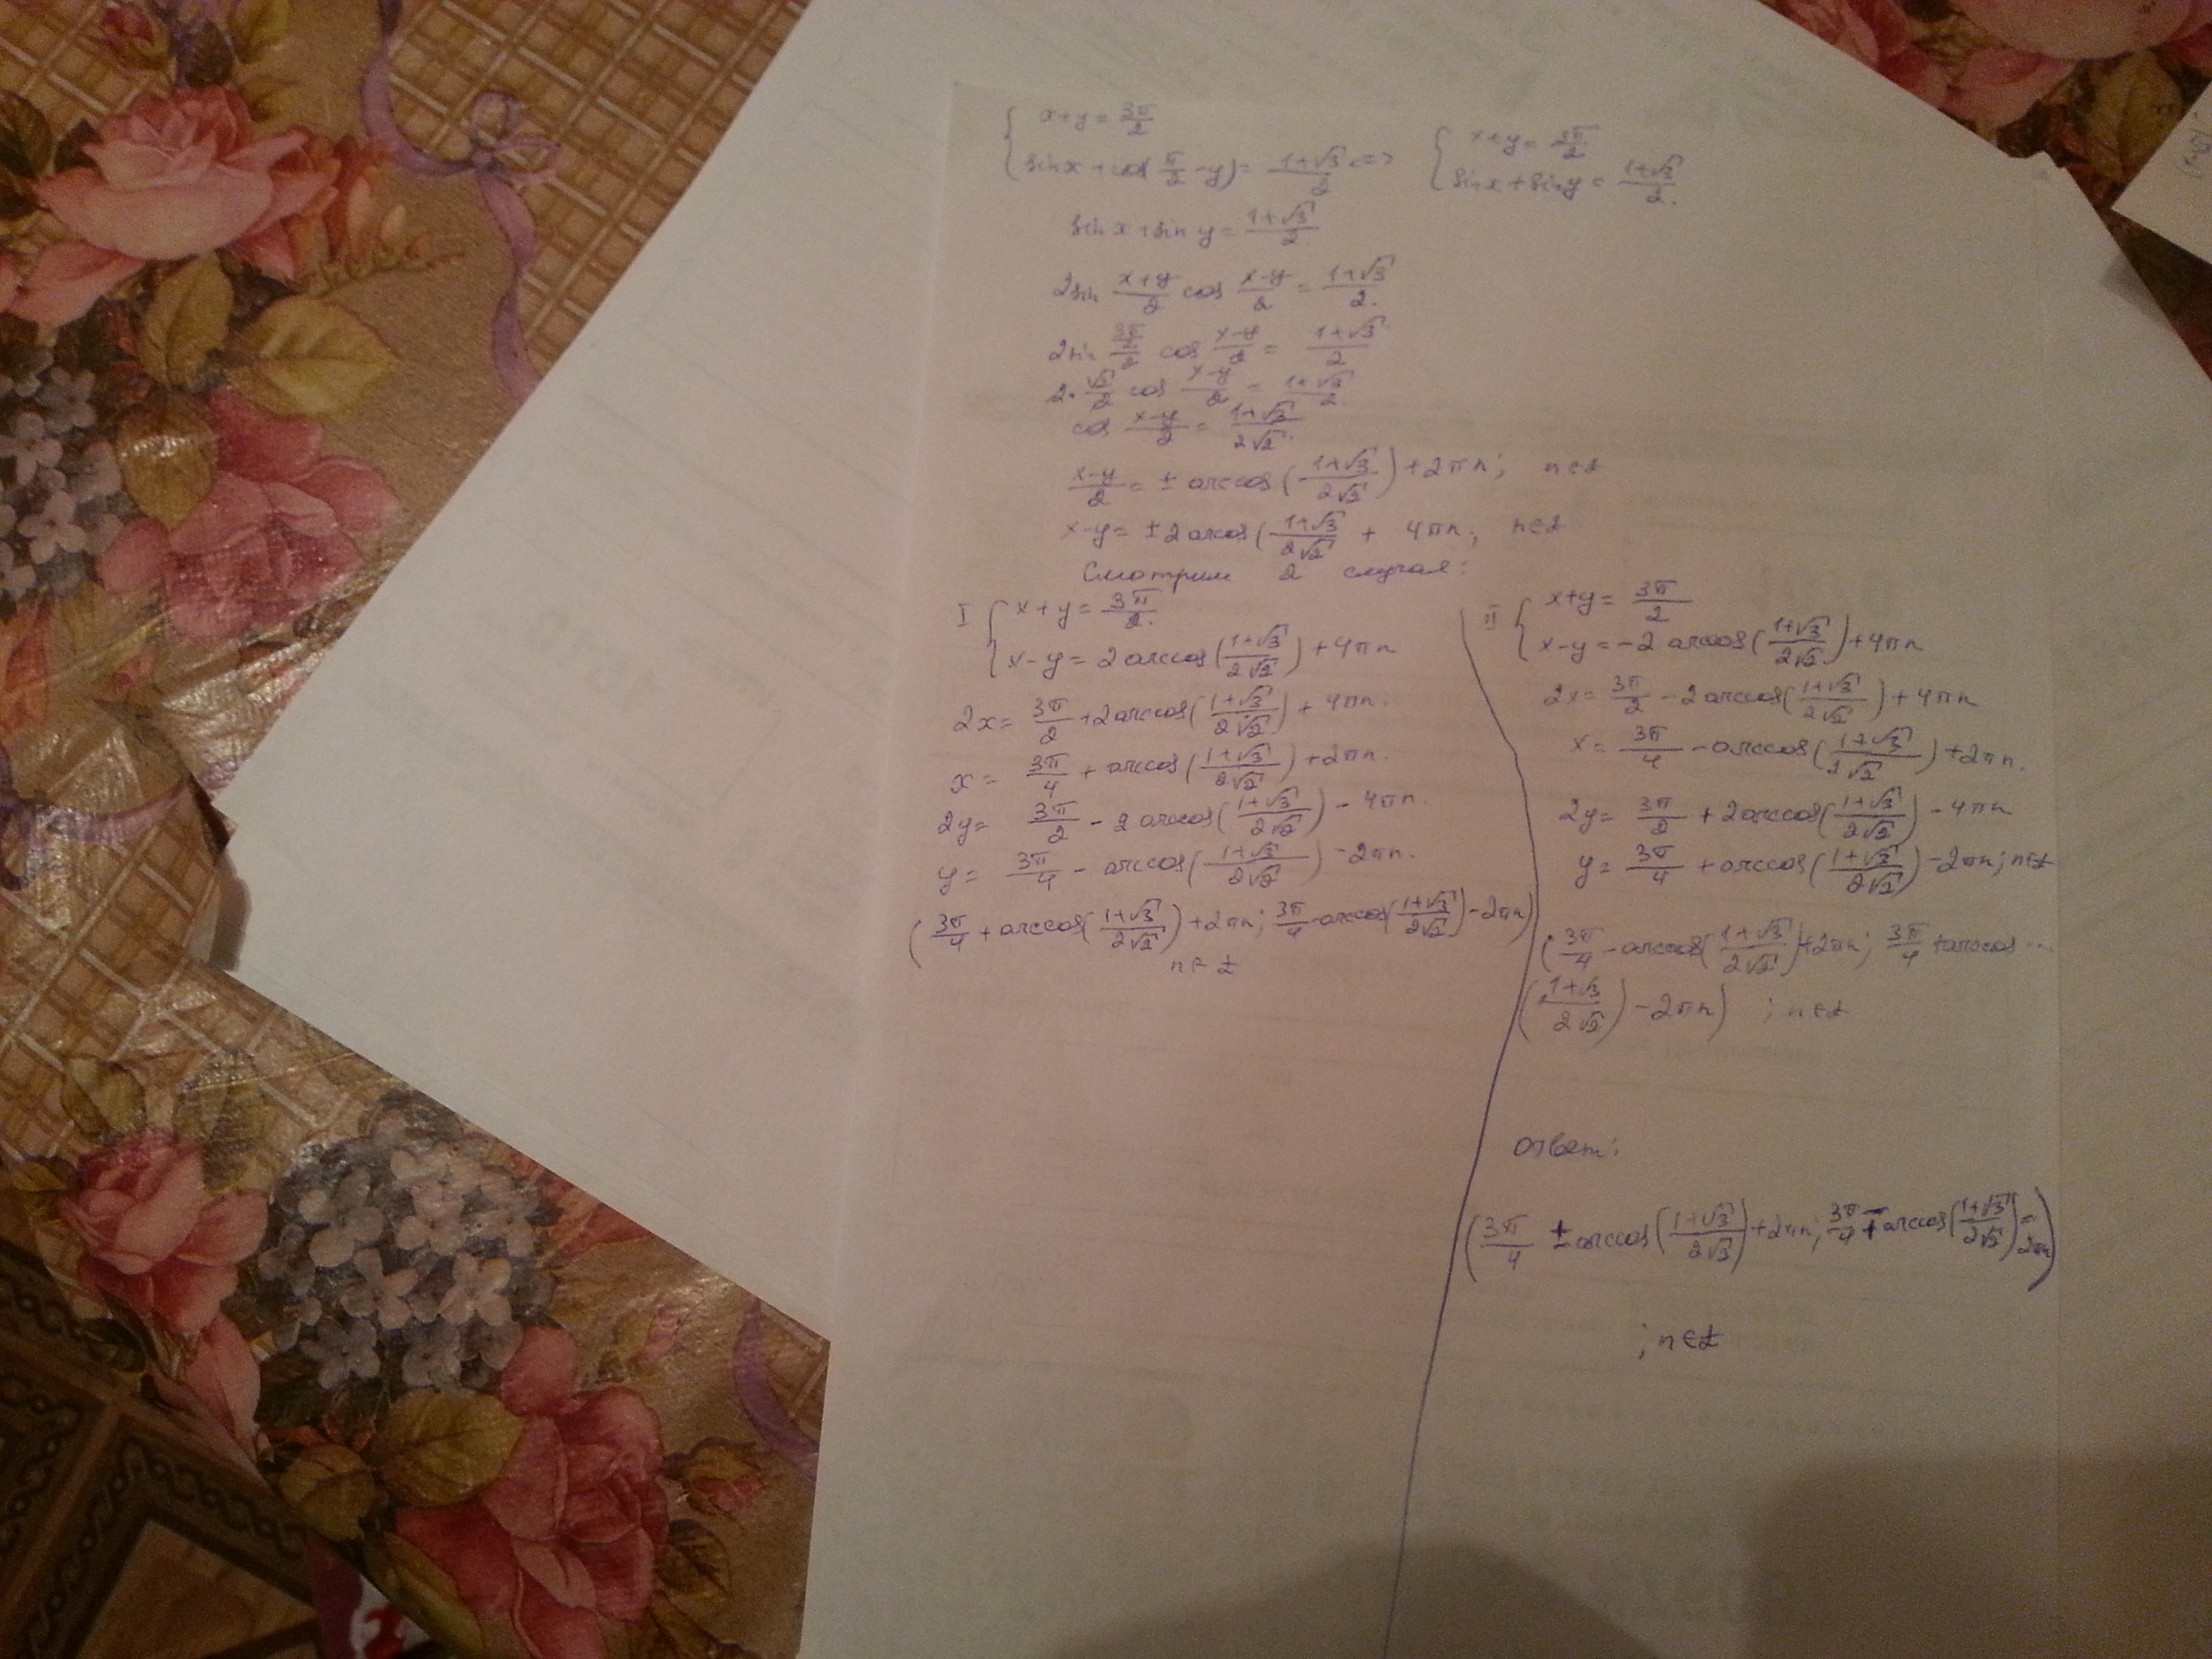 { x+y = 3π/2
{ sin x + cos( π/2 - y) = (1+√3)/2 <=>
{ x+y = 3π/2
{ sin x + sin y = (1+√3)/2.
sin x + sin y = (1+√3)/2.
2 sin (x+y)/2 cos (x-y)/2 = (1+√3)/2.
2 sin (3π/2)/2 cos (x-y)/2 = (1+√3)/2
2·√2/2 cos (x-y)/2 = (1+√3)/2.
cos (x-y)/2 = (1+√3)/(2√2).
(x-y)/2 = ± arccos((1+√3)/(2√2)) + 2πn; n∈Z
x-y = ±2 arccos((1+√3)/(2√2) + 4πn; n∈Z
Смотрим 2 случая:
I { x+y = 3π/2.
{ x-y = 2 arccos((1+√3)/(2√2)) + 4πn
2x = 3π/2 + 2 arccos((1+√3)/(2√2)) + 4πn.
x = 3π/4 + arccos((1+√3)/(2√2)) + 2πn.
2y = 3π/2 - 2 arccos((1+√3)/(2√2)) - 4πn.
y = 3π/4 - arccos((1+√3)/(2√2)) - 2πn.
(3π/4 + arccos((1+√3)/(2√2)) + 2πn; 3π/4 - arccos((1+√3)/(2√2)) - 2πn)
n∈Z
II { x+y = 3π/2
{ x-y = -2 arccos((1+√3)/(2√2)) + 4πn
2x = 3π/2 - 2 arccos((1+√3)/(2√2)) + 4πn
x = 3π/4 - arccos((1+√3)/(2√2)) + 2πn.
2y = 3π/2 + 2 arccos((1+√3)/(2√2)) - 4πn
y = 3π/4 + arccos((1+√3)/(2√2)) - 2πn; n∈Z
(3π/4 - arccos((1+√3)/(2√2)) + 2πn; 3π/4 + arccos ...
((1+√3)/(2√2)) - 2πn) ; n∈Z
Ответ:
(3π/4 ± arccos((1+√3)/(2√2)) + 2πn; 3π/4 ∓ arccos((1+√3)/(2√2)) - 2πn)
; n∈Z